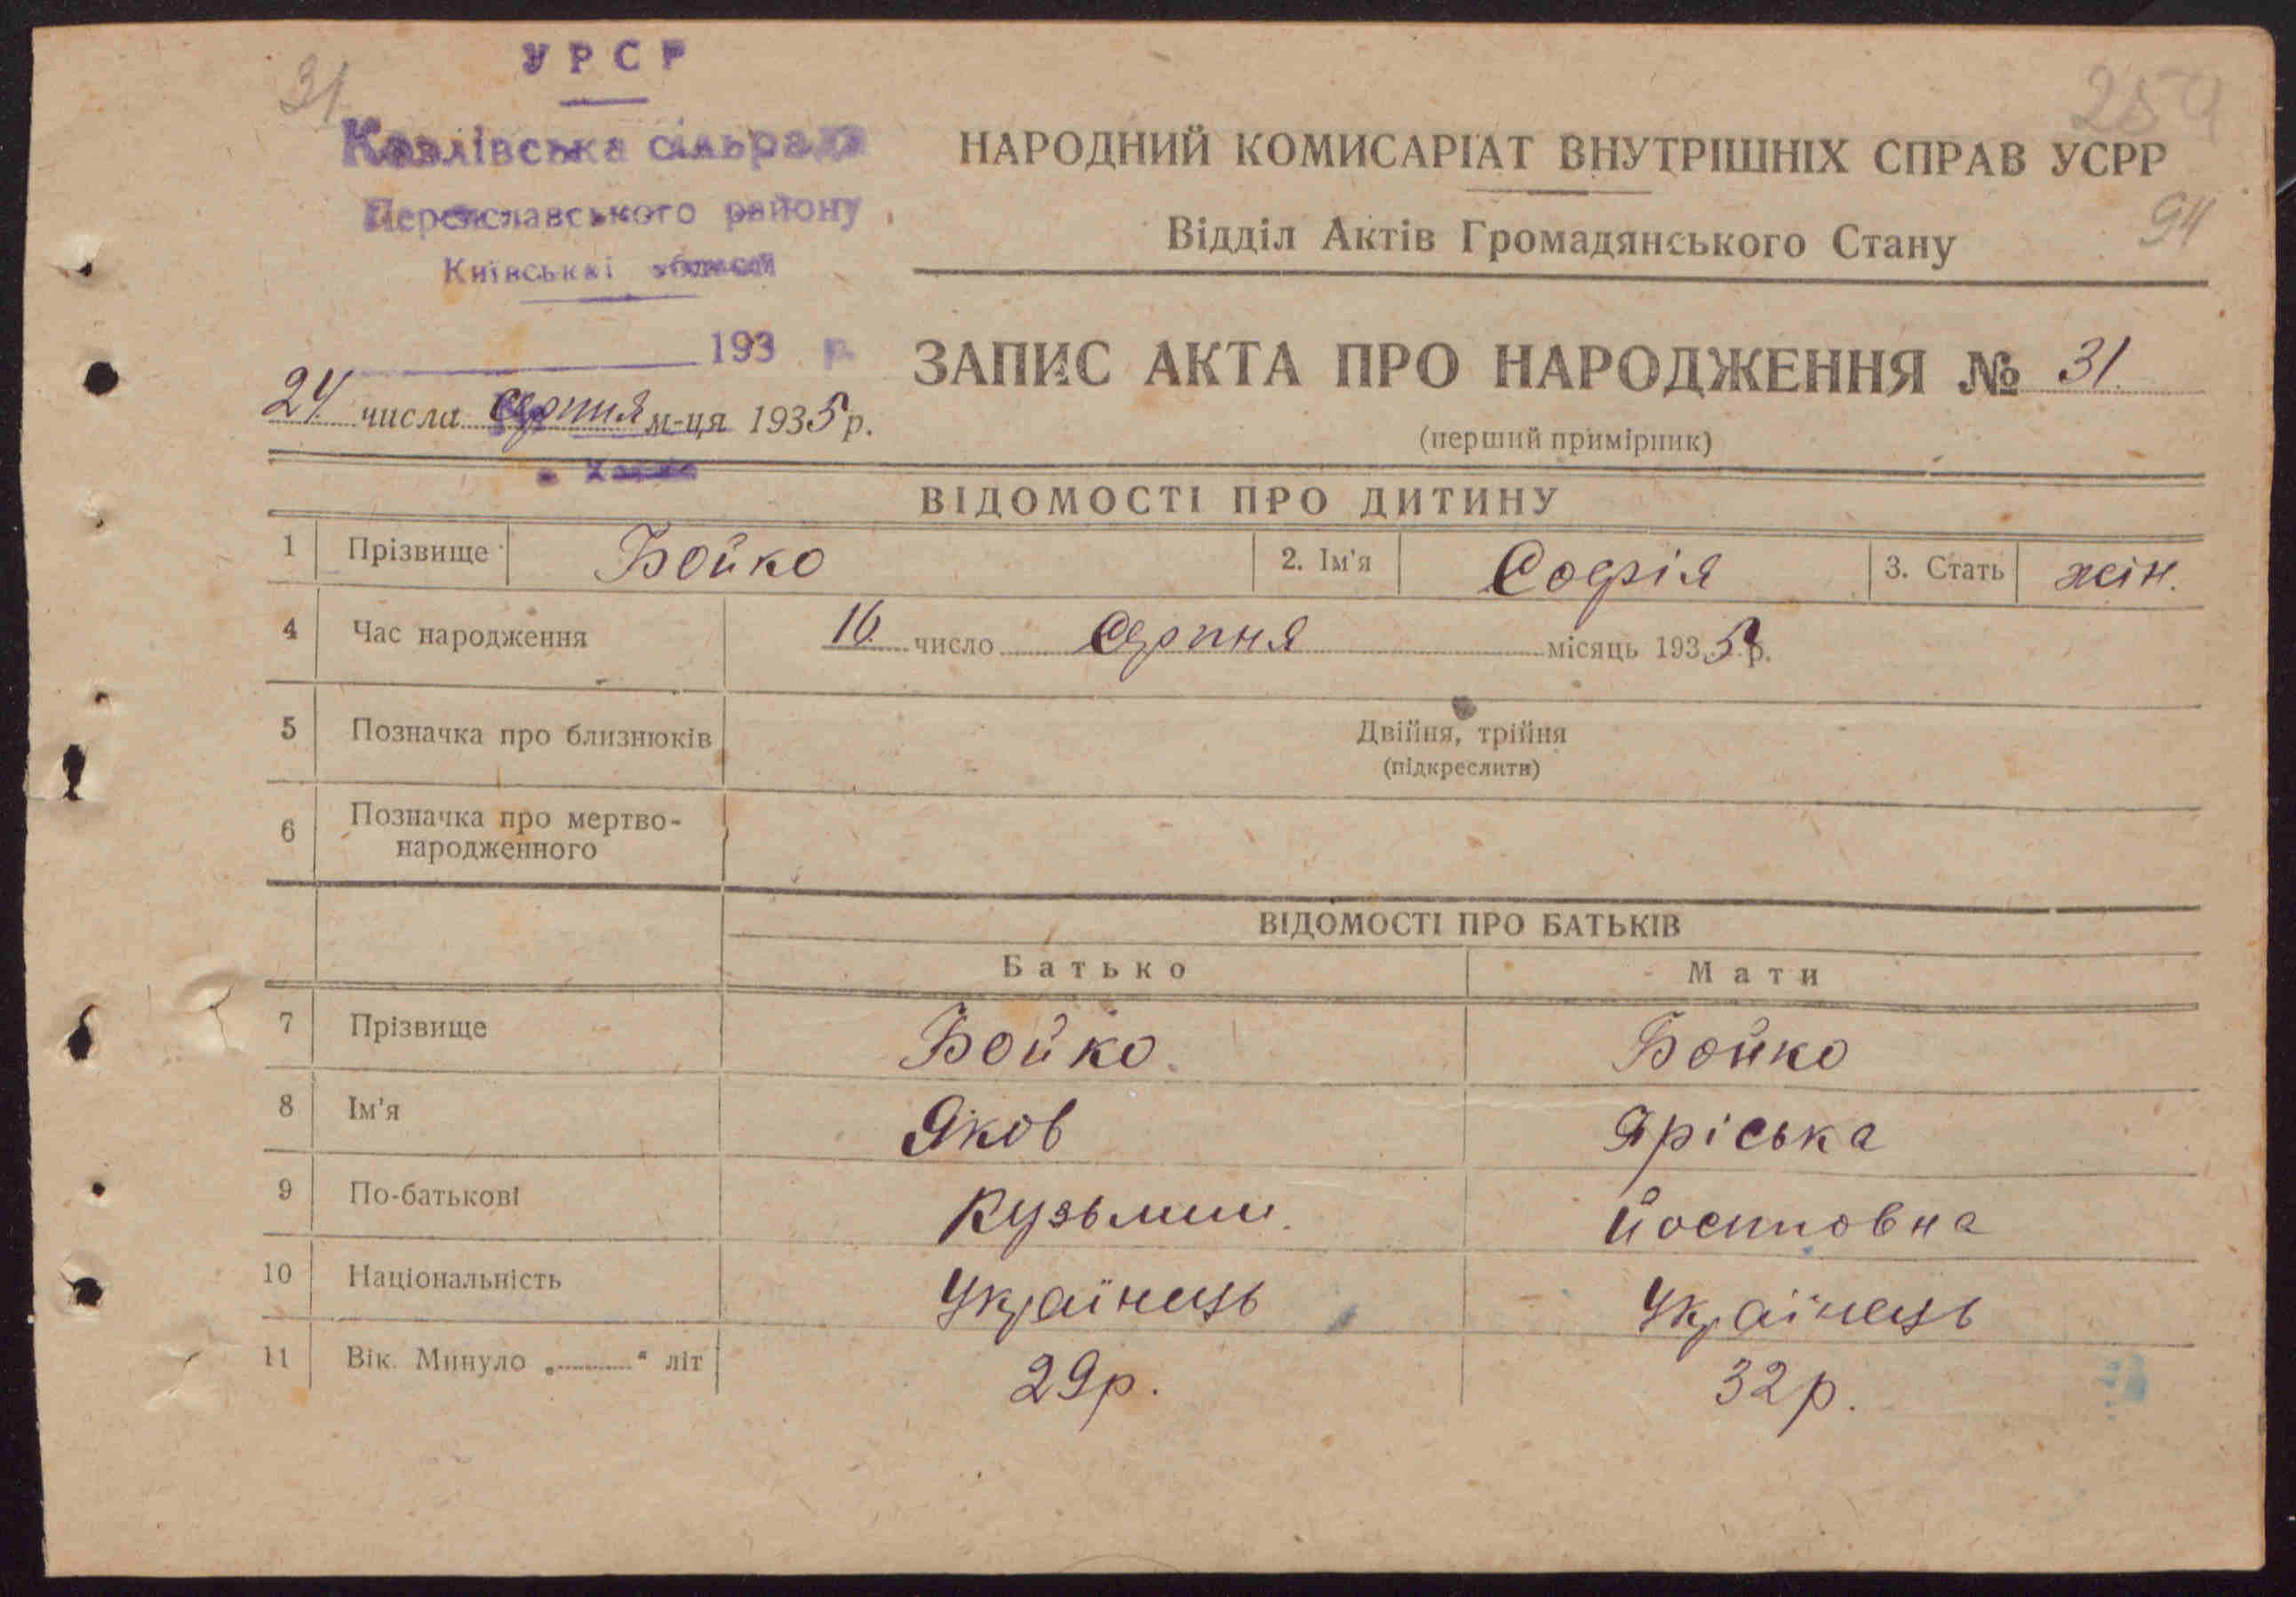 31
УРСР
259
Козлівська сільрада
НАРОДНИЙ КОМИСАРІАТ ВНУТРІШНІХ СПРАВ УСРР
94
Переяславського району
Відділ Актів Громадянського Стану
Київської області
193 р.
ЗАПИС АКТА ПРО НАРОДЖЕННЯ № 31.
24 числа серпня м-ця 1935 р.
(перший примірник)
ВІДОМОСТІ ПРО ДИТИНУ
1 Прізвище Бойко 2. Ім'я Софія 3. Стать жін.
4 Час народження 16 число серпня місяць 1935 р.
5 Позначка про близнюків Двійня, трійня
(підкреслити)
6 Позначка про мертво-
народженного
ВІДОМОСТІ ПРО БАТЬКІВ
Батько Мати
7 Прізвище Бойко. Бойко
8 Ім'я Яков Яріська
9 По-батькові Кузьмич. Йостовна
10 Національність Українець Українець
11 Вік. Минуло „..........“ літ 29р. 32р.